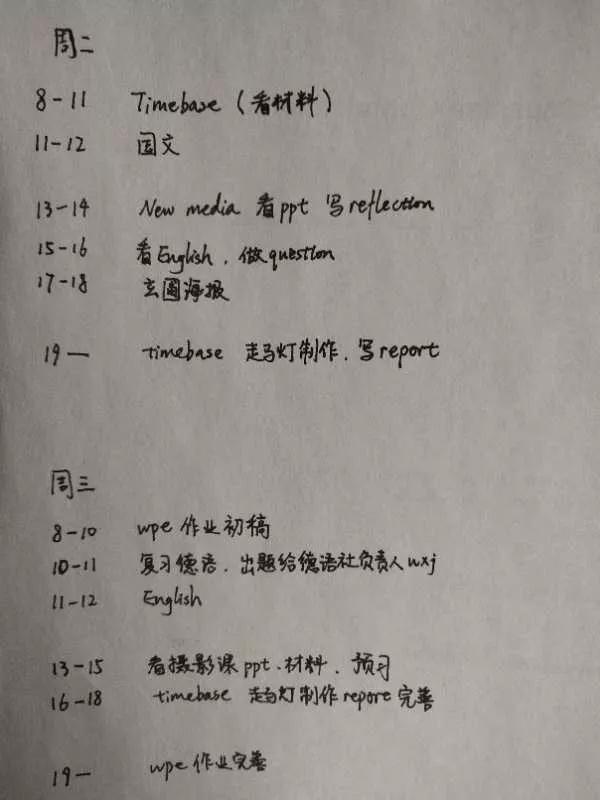 周二
8-11 Timebase (看材料)
11-12 国文
13-14 New media 看ppt 写reflection
15-16 看English, 做question
17-18 海报
19— timebase 走马灯制作, 写report
周三
8-10 wpe 作业初稿
10-11 复习德语, 出题给德语社负责人wxj
11-12 English
13-15 看摄影课ppt、材料、预习
16-18 timebase 走马灯制作report完善
19— wpe 作业完善